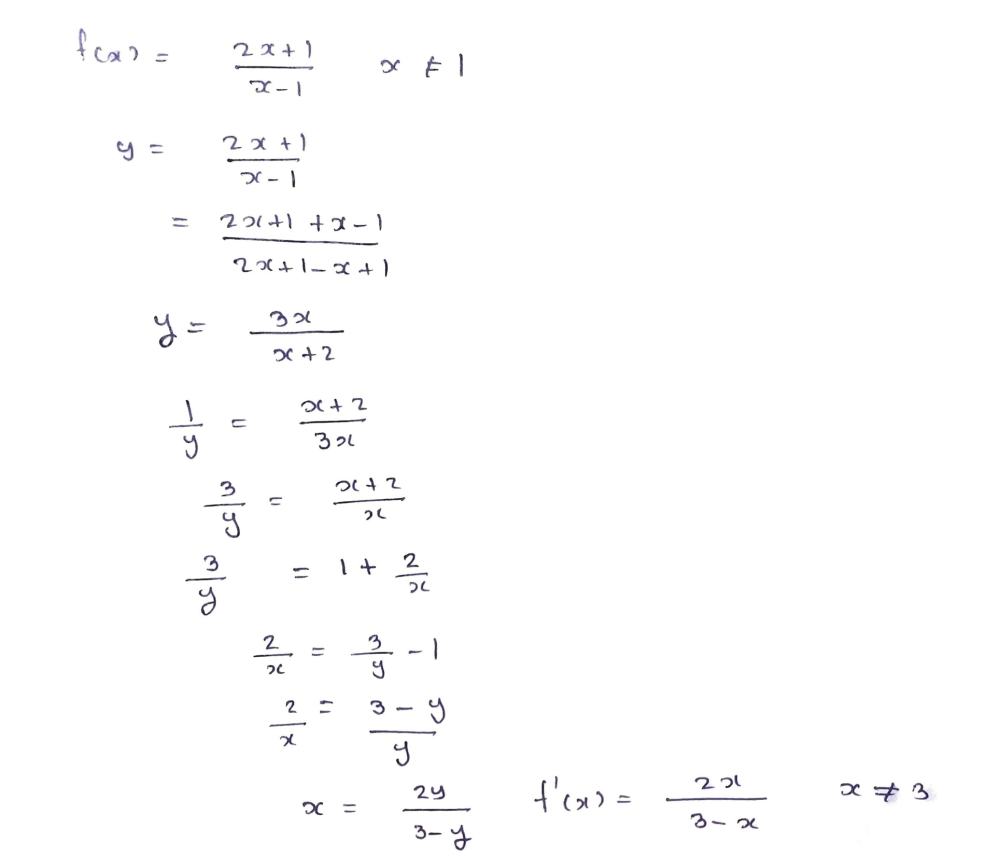 f(x) = \frac{2x+1}{x-1} x ≠ 1
y = \frac{2x+1}{x-1}
= \frac{2x+1+x-1}{2x+1-x+1}
y = \frac{3x}{x+2}
\frac{1}{y} = \frac{x+2}{3x}
\frac{3}{y} = \frac{x+2}{x}
\frac{3}{y} = 1 + \frac{2}{x}
\frac{2}{x} = \frac{3}{y} - 1
\frac{2}{x} = \frac{3-y}{y}
x = \frac{2y}{3-y} f'(x) = \frac{2x}{3-x} x ≠ 3